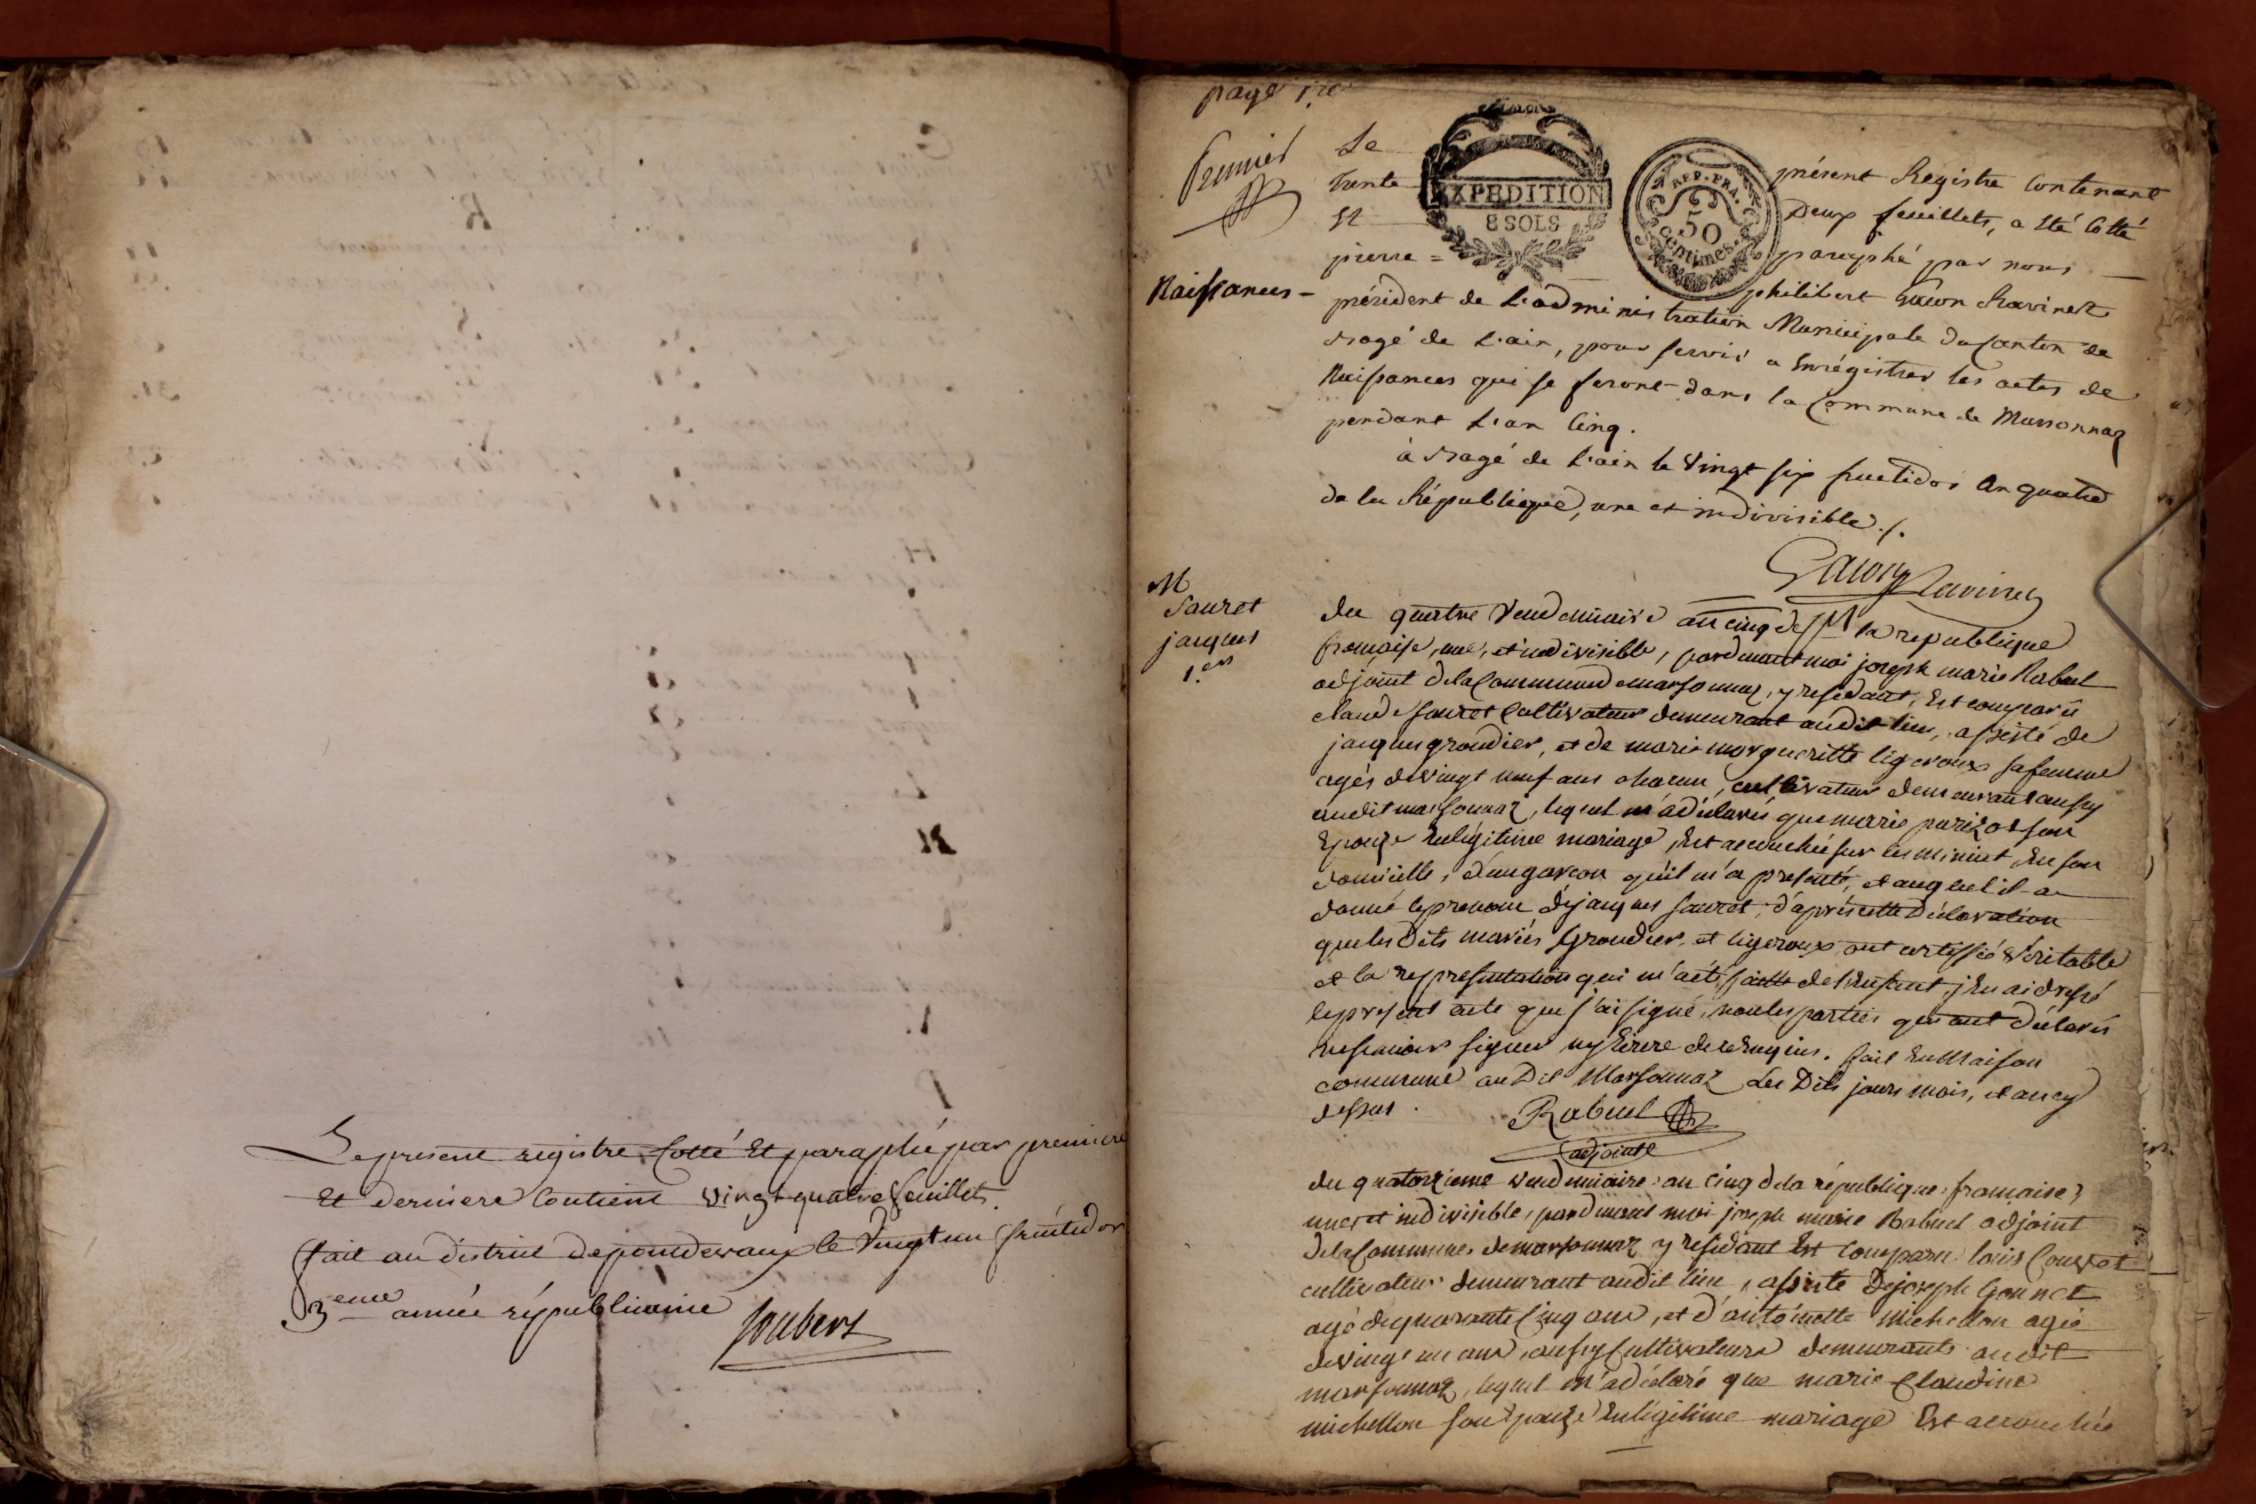 Le present registre Cotté Et paraphé par premiere
Et derniere Contient vingt quatre feuillets.
fait au district de pontdevaux le vingt un fructidor
3eme année républicaine
Joubert
page 1.re
Premier
Naissances -
EXPEDITION
8 SOLS
REP. FRA.
50
centimes.
Le présent Registre Contenant
Trente Deux feuillets, a Eté Cotté
Et parephé par nous
pierre = philibert Gacon Ravinet
président de L'administration Municipale du Canton de
Bagé de L'ain, pour servir a Enrégistrer les actes de
Naissances qui se feront dans la Commune de Marsonnaz
pendant L'an Cinq.
à Bagé de L'ain le vingt six fructidor An quatre
de la République, une et indivisible ./.
Gacon Ravinet
M
Sauret
jacques
1.er
du quatre vendemiaire an cinq de la republique
françaíse, une, et indivisible, pardevant moi joseph marie Rabuel
adjoint de la Commune de marsonnaz, y residant, Est comparu
claude sauret Cultivateur demeurant audit lieu, assisté de
jacques groudier, et de marie margueritte ligeroux sa femme
agés de vingt neuf ans chacun, cultivateurs demeurant aussy
audit marsonnaz, lequel m'a déclaré que marie parizot son
Epouze En légitime mariage, Est accouchée sur les minuit, En son
domicille, d'un garcon qu'il m'a presenté, et auquel il a
donné le prenom de jacques sauret, d'après cette déclaration
que les Dits mariés Groudier, et ligeroux ont certiffié véritable
et la representation qui m'a été faitte de l'Enfant, j'en ai dressé
le present acte que j'ai signé, non les parties qui ont déclaré
ne savoir signer ny Ecrire de ce Enquis. fait En Maison
commune au Dit Marsonnaz Les Dits jours mois, et an cy
dessus.
Rabuel
adjoint
du quatorzieme vendemiaire an cinq de la république francaise,
une et indivisible, pardevant moi joseph marie Rabuel adjoint
de la Commune de marsonnaz y residant Est Comparu louis
cultivateur demeurant audit lieu, assisté de joseph Gonnet
agé de quarante Cinq ans, et d'antoinette michellon agée
de vingt un ans, aussy Cultivateurs demeurants audit
marsonnaz, lequel m'a déclaré que marie Claudine
michellon son Epouze En légitime mariage Est accouchée